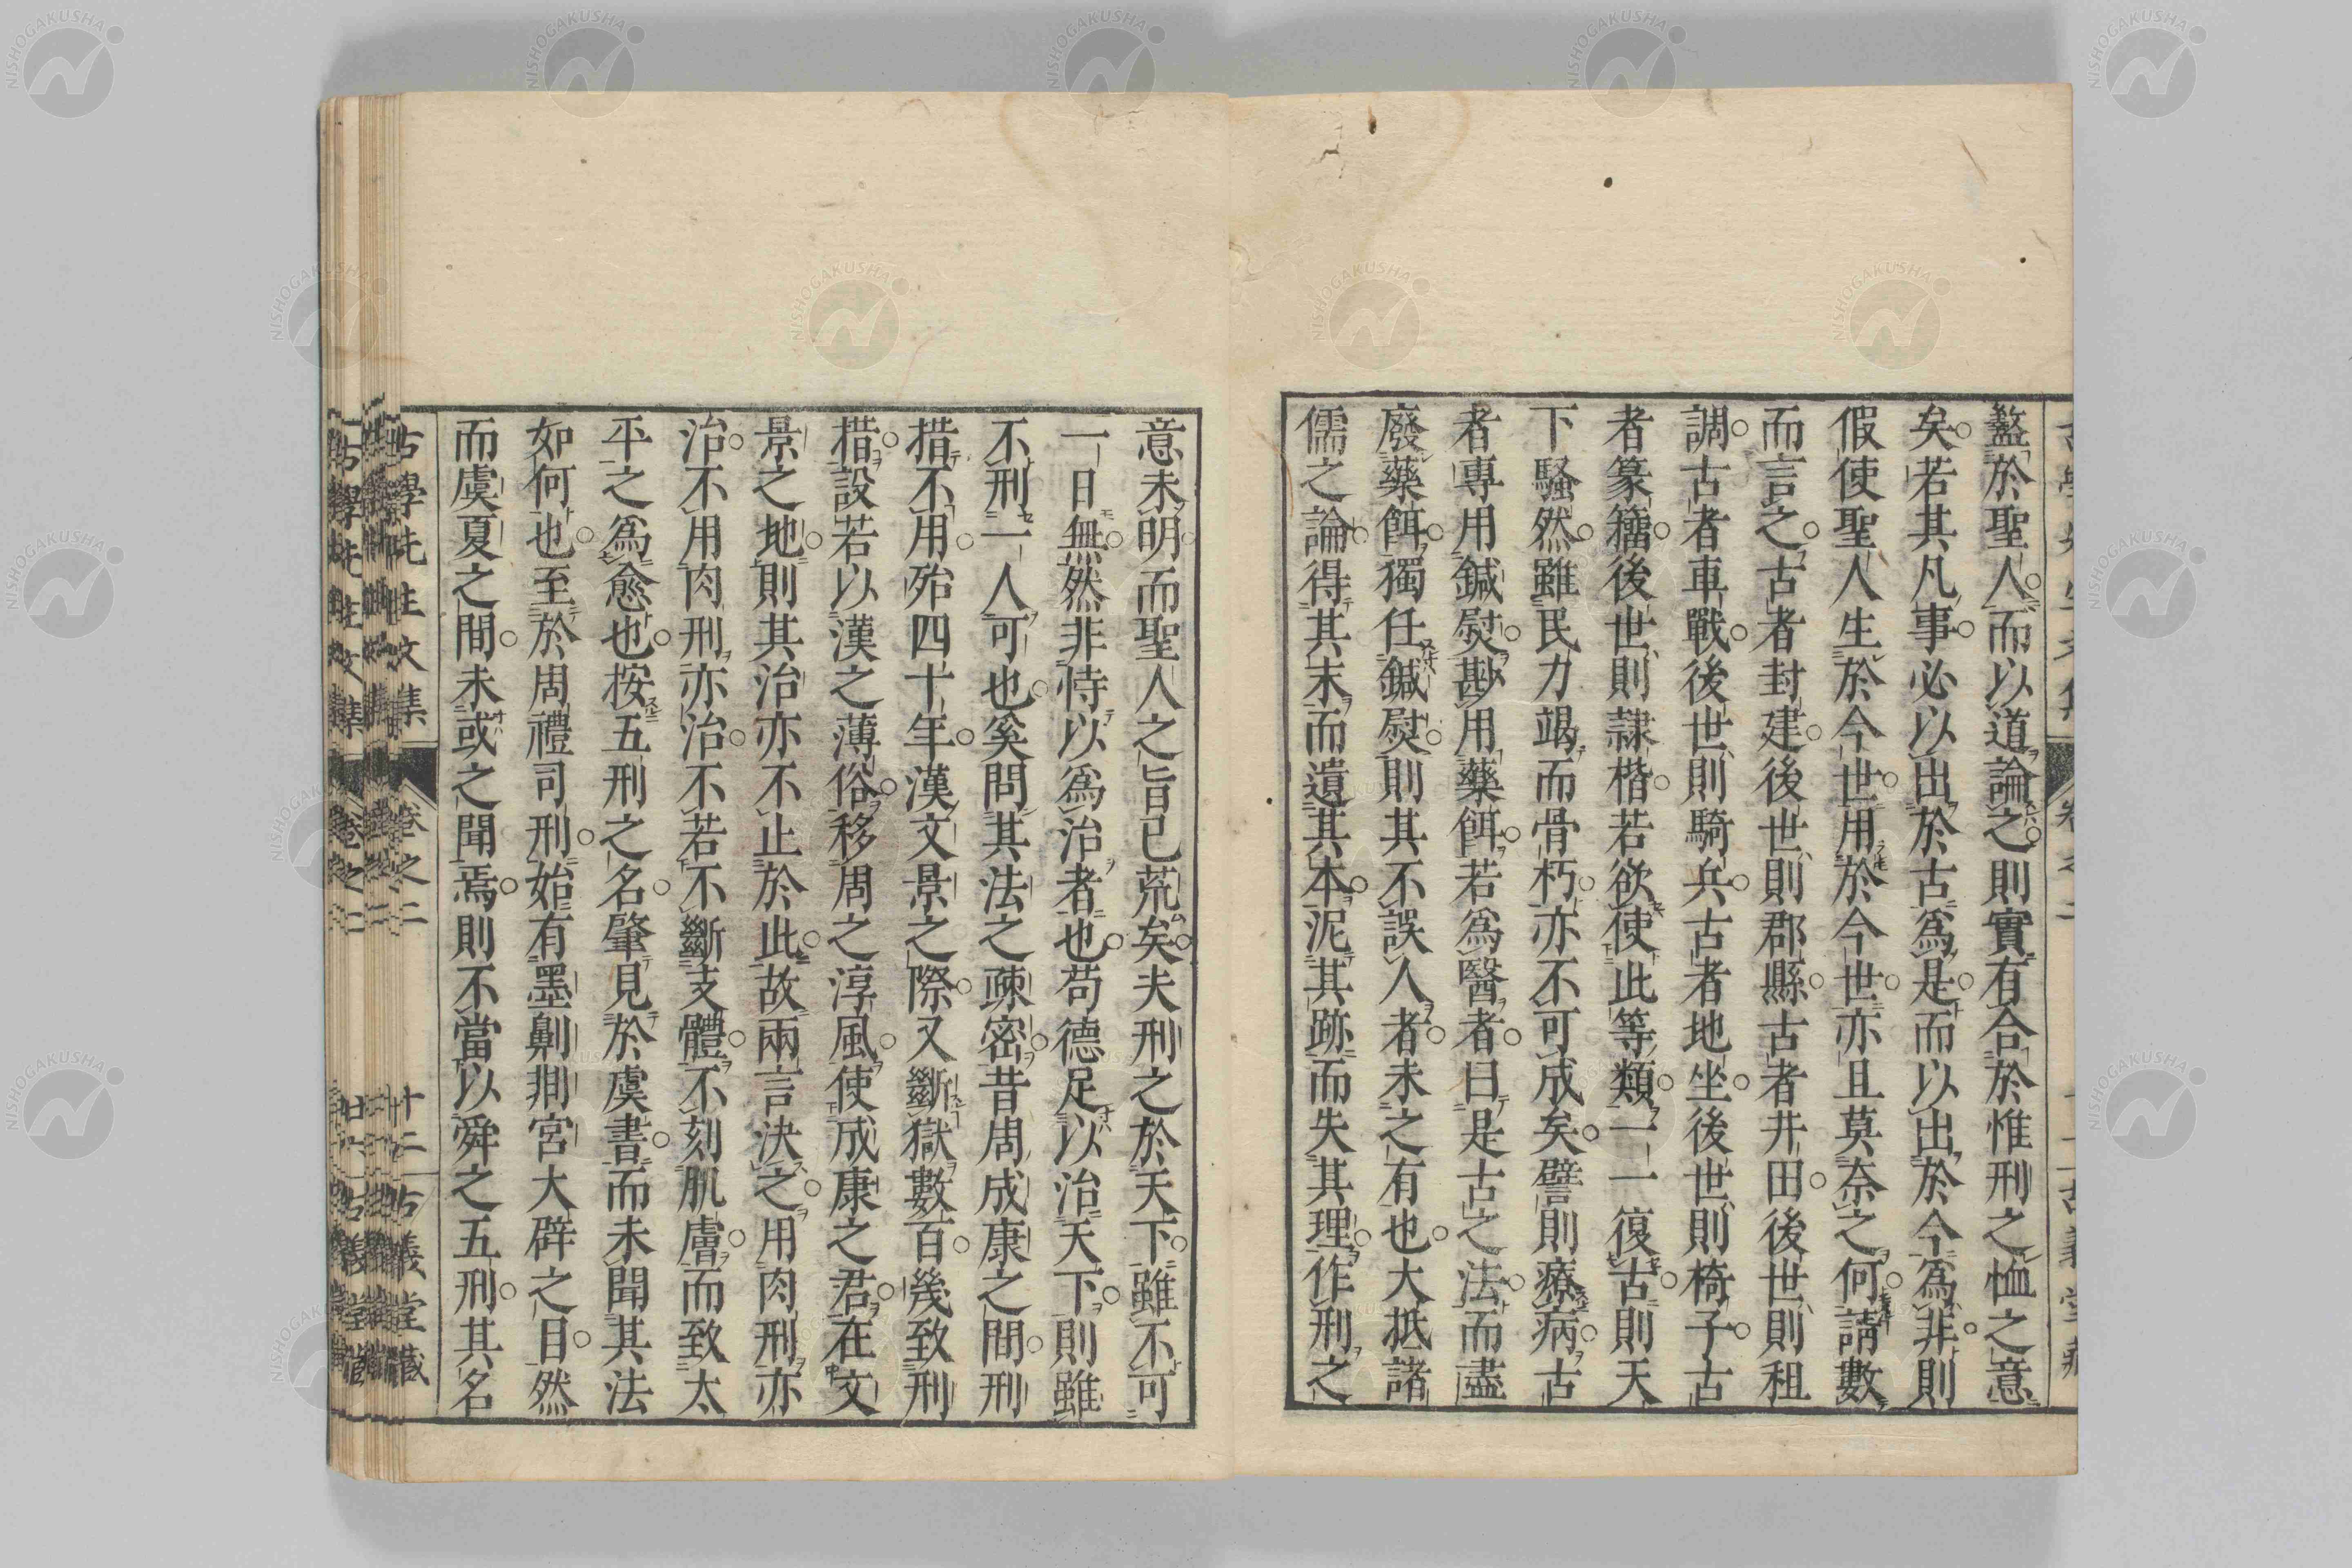 盭於聖人而以道論之則實有合於惟刑之恤之意
矣若其凡事必以出於古爲是而以出於今爲非則
假使聖人生於今世用於今世亦且莫奈之何請數
而言之古者封建後世則郡縣古者井田後世則租
調古者車戰後世則騎兵古者地坐後世則椅子古
者篆籒後世則隷楷若欲使此等類一一復古則天
下騷然雖民力竭而骨朽亦不可成矣譬則療病古
者專用鍼熨尠用藥餌若爲醫者曰是古之法而盡
廢藥餌獨任鍼熨則其不誤人者未之有也大抵諸
儒之論得其末而遺其本泥其跡而失其理作刑之
意未明而聖人之旨已荒矣夫刑之於天下雖不可
一日無然非恃以爲治者也苟德足以治天下則雖
不刑一人可也奚問其法之疎密昔周成康之間刑
措不用殆四十年漢文景之際又斷獄數百幾致刑
措設若以漢之薄俗移周之淳風使成康之君在文
景之地則其治亦不止於此故兩言決之用肉刑亦
治不用肉刑亦治不若不斷支體不刻肌膚而致太
平之爲愈也按五刑之名肇見於虞書而未聞其法
如何也至於周禮司刑始有墨劓剕宮大辟之目然
而虞夏之間未或之聞焉則不當以舜之五刑其名
古學先生文集 卷之二 十二 古義堂藏